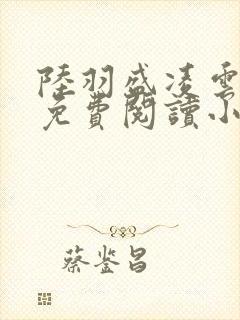 陸羽盛凌雲
免費閱讀小
蔡鉴昌